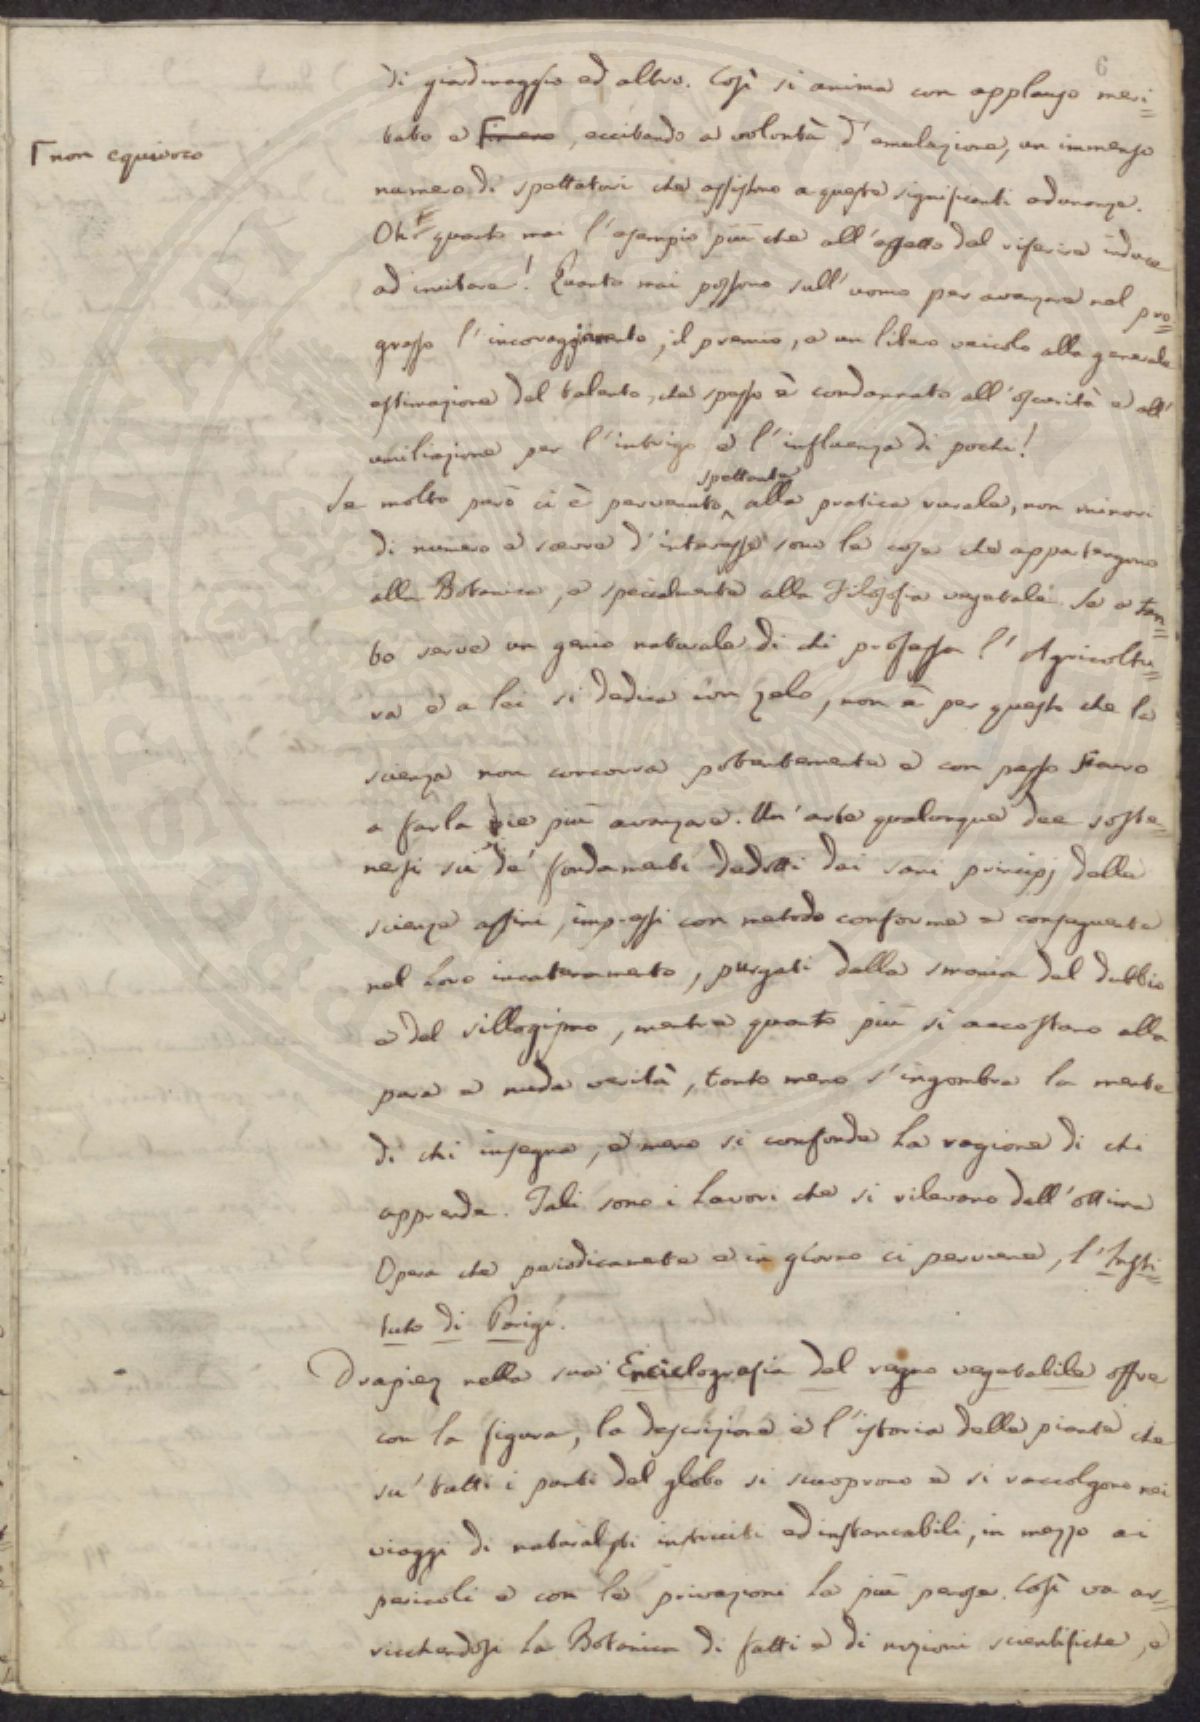 6
di giardinaggio ed altro. Così si anima con applauso meri=
tato e sincero, eccitando a volontà d'emulazione, un immenso
Γ non equivoco
numero di spettatori che assistono a queste significanti adunanze.
Oh! quanto mai l'esempio più che all'effetto del riferire induce
ad imitare! Quanto mai possono sull'uomo per avanzare nel pro=
gresso l'incoraggiamento, il premio, e un libero veicolo alla generale
estimazione del talento, che spesso è condannato all'oscurità e all'
umiliazione per l'intrigo e l'influenza di pochi!
Se molto però ci è pervenuto spettante alla pratica rurale, non minori
di numero e scevre d'interesse sono le cose che appartengono
alla Botanica, e specialmente alla Filosofia vegetale. Se a tan=
to serve un genio naturale di chi professa l'Agricoltu=
ra e a lei si dedica con zelo, non è per questo che la
scienza non concorra potentemente e con passo franco
a farla vie più avanzare. Un'arte qualunque dee soste=
nersi su de' fondamenti dedotti dai sani principj delle
scienze affini, impressi con metodo conforme e conseguente
nel loro incatenamento, purgati dalla smania del dubbio
e del sillogismo, mentre quanto più si accostano alla
pura e nuda verità, tanto meno s'ingombra la mente
di chi insegna, e meno si confonde la ragione di chi
apprende. Tali sono i lavori che si rilevano dall'ottima
Opera che periodicamente e in giorno ci perviene, l'Insti=
tuto di Parigi.
Drapiez nella sua Enciclografia del regno vegetabile offre
con la figura, la descrizione e l'istoria delle piante che
su' tutti i punti del globo si scuoprono e si raccolgono nei
viaggi di naturalisti instruiti ed instancabili, in mezzo ai
pericoli e con le privazioni le più penose. Così va ar=
ricchendosi la Botanica di fatti e di nozioni scientifiche, e